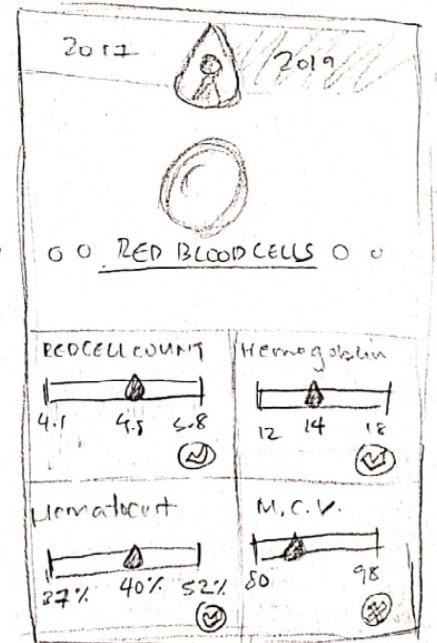 2017 2019
RED BLOOD CELLS
REDCELL COUNT
4.1 4.5 5.8
Hemogoblin
12 14 18
Hematocrit
37% 40% 52%
M.C.V.
80 98